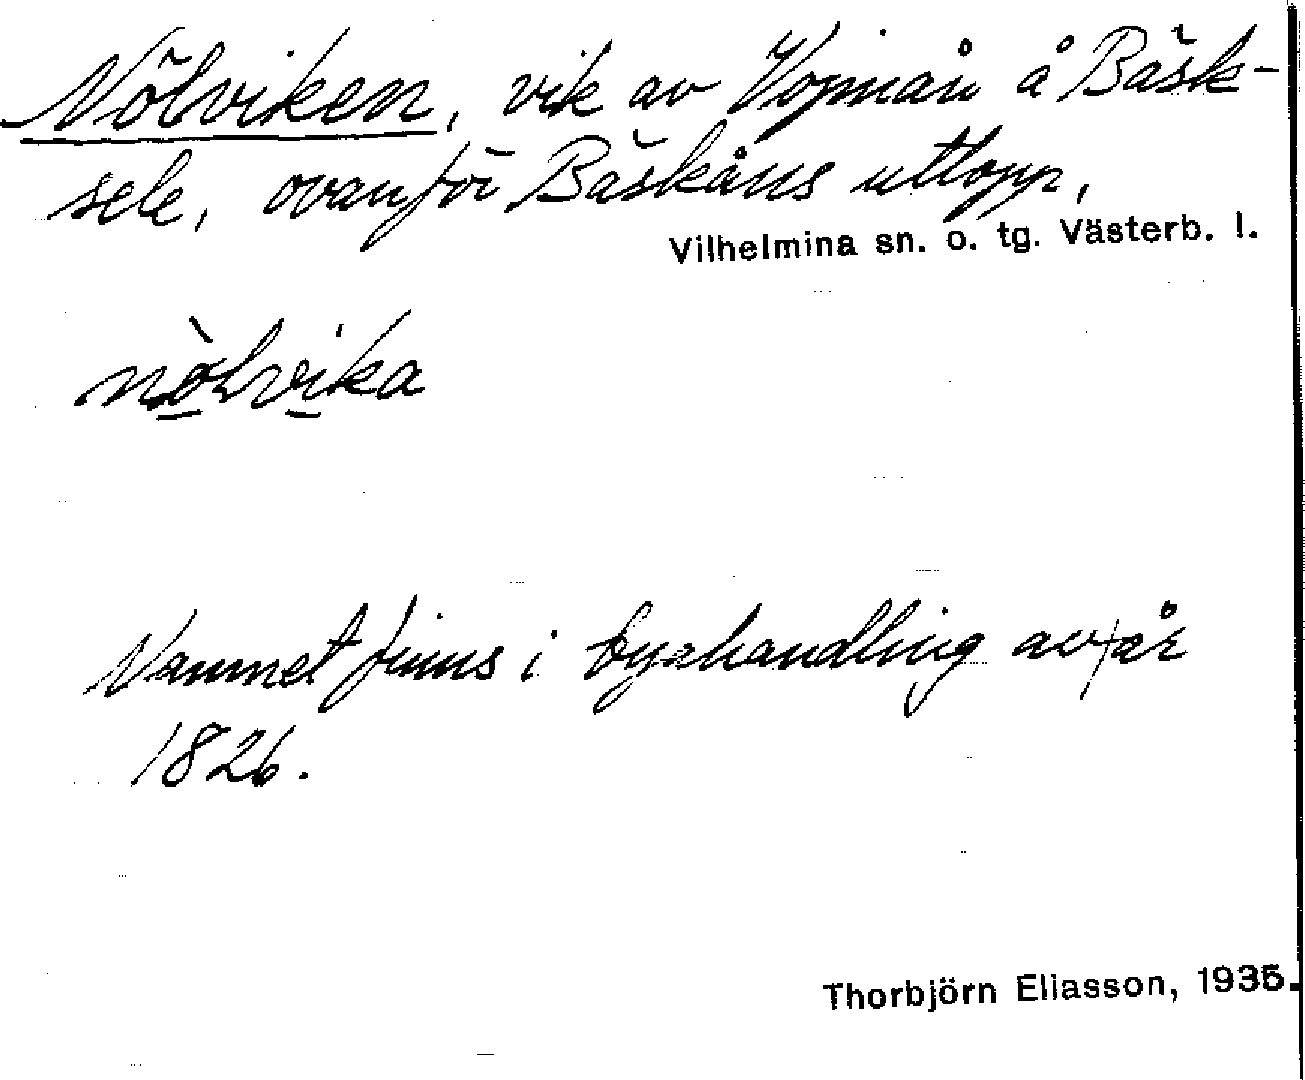 Nölviken, vik av Vojmån å Båsk-
sele, ovanför Båskåns utlopp,
Vilhelmina sn. o. tg. Västerb. l.
nòlvika
Namnet finns i byahandling av år
1826.
Thorbjörn Eliasson, 1935.